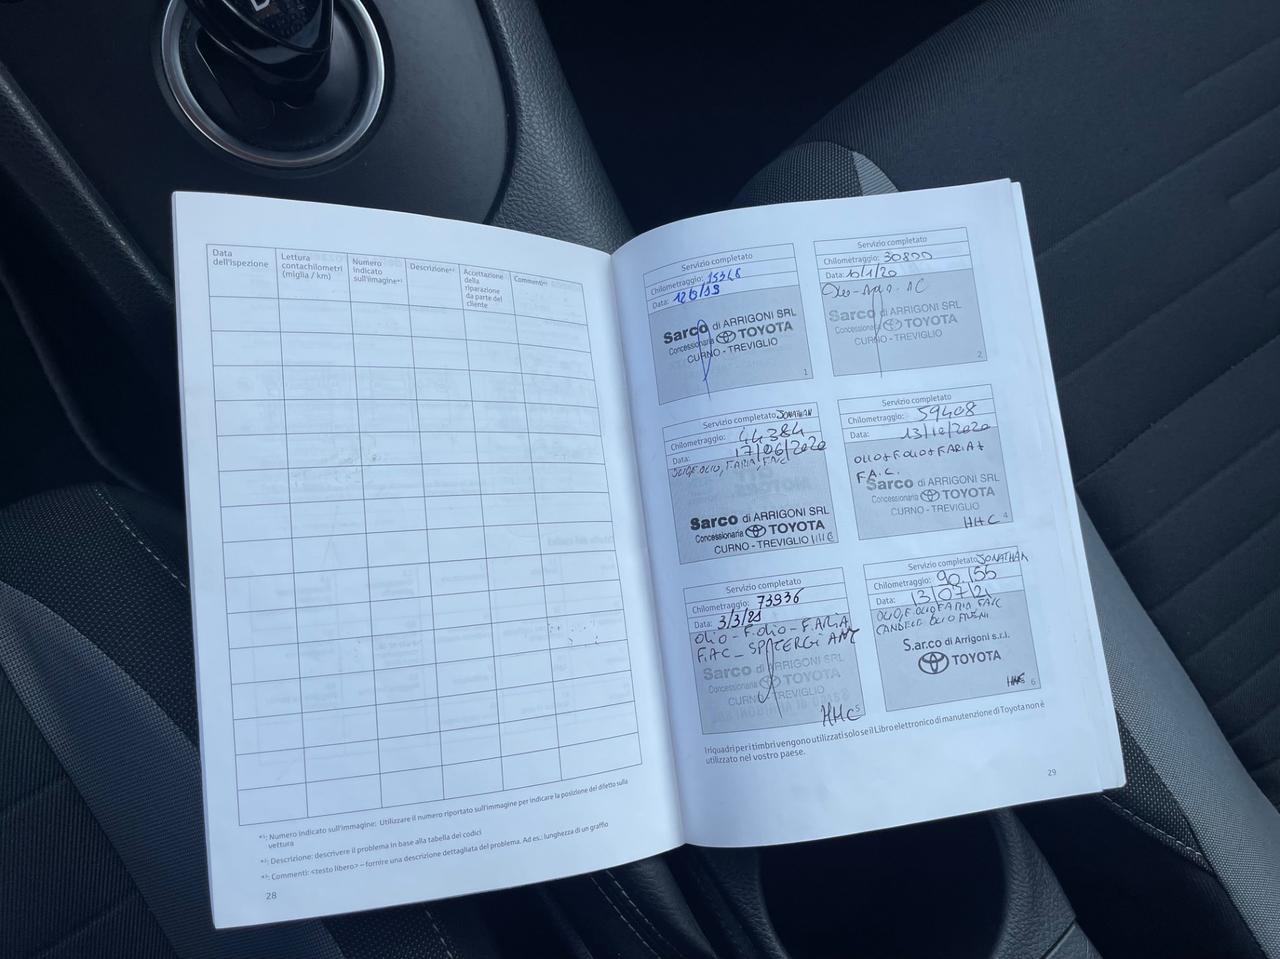 Data dell'ispezione
Lettura contachilometri (miglia / km)
Numero indicato sull'immagine*¹
Descrizione*²
Accettazione della riparazione da parte del cliente
Commenti*³
*¹: Numero indicato sull'immagine: Utilizzare il numero riportato sull'immagine per indicare la posizione del difetto sulla
vettura
*²: Descrizione: descrivere il problema in base alla tabella dei codici
*³: Commenti: <testo libero> – fornire una descrizione dettagliata del problema. Ad es.: lunghezza di un graffio
28
Servizio completato
Chilometraggio:
Data:
Sarco di ARRIGONI SRL
Concessionaria TOYOTA
CURNO - TREVIGLIO
1
Servizio completato
Chilometraggio: 30800
Data: 10/1/20
Sarco di ARRIGONI SRL
Concessionaria TOYOTA
CURNO - TREVIGLIO
2
Servizio completato JONATHAN
Chilometraggio: 44384
Data: 17/06/2020
OLIO, F.OLIO, F.ARIA, FAC
Sarco di ARRIGONI SRL
Concessionaria TOYOTA
CURNO - TREVIGLIO
Servizio completato
Chilometraggio: 59408
Data: 13/10/2020
OLIO+F.OLIO+F.ARIA+
F.A.C.
Sarco di ARRIGONI SRL
Concessionaria TOYOTA
CURNO - TREVIGLIO
HHC 4
Servizio completato
Chilometraggio: 73936
Data: 3/3/21
OLIO - F.OLIO - F.ARIA
F.AC - SP.TERGI ANT
Sarco di ARRIGONI SRL
Concessionaria TOYOTA
CURNO - TREVIGLIO
HHC 5
Servizio completato JONATHAN
Chilometraggio: 90.155
Data: 13/07/21
OLIO, F.OLIO F.ARIA FAC
CANDELE OLIO FRENI
S.ar.co di Arrigoni s.r.l.
TOYOTA
6
I riquadri per i timbri vengono utilizzati solo se il Libro elettronico di manutenzione di Toyota non è
utilizzato nel vostro paese.
29